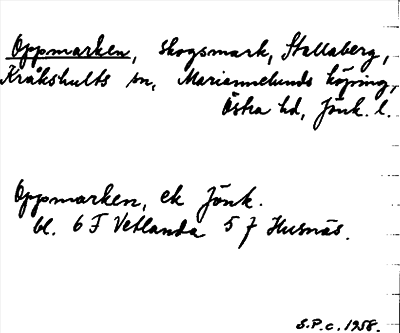 Oppmarken, skogsmark, Stallaberg,
Kråkshults sn, Mariannelunds köping,
Östra hd, Jönk. l.
Oppmarken, ek Jönk.
bl. 6 F Vetlanda 5 f Husnäs.
S.P.c. 1958.